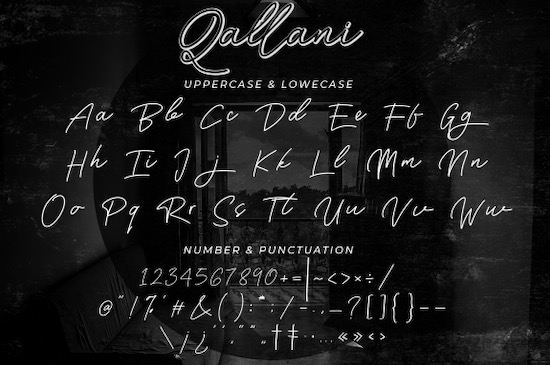 Qallani
UPPERCASE & LOWECASE
Aa Bb Cc Dd Ee Ff Gg
Hh Ii Jj Kk Ll Mm Nn
Oo Pq Rr Ss Tt Uu Vv Ww
NUMBER & PUNCTUATION
1234567890+=|~<>×÷/
@"!%'#&()*:;/-.,_?[]{}--
\¡¿‚''""„†‡·•…«»‹›